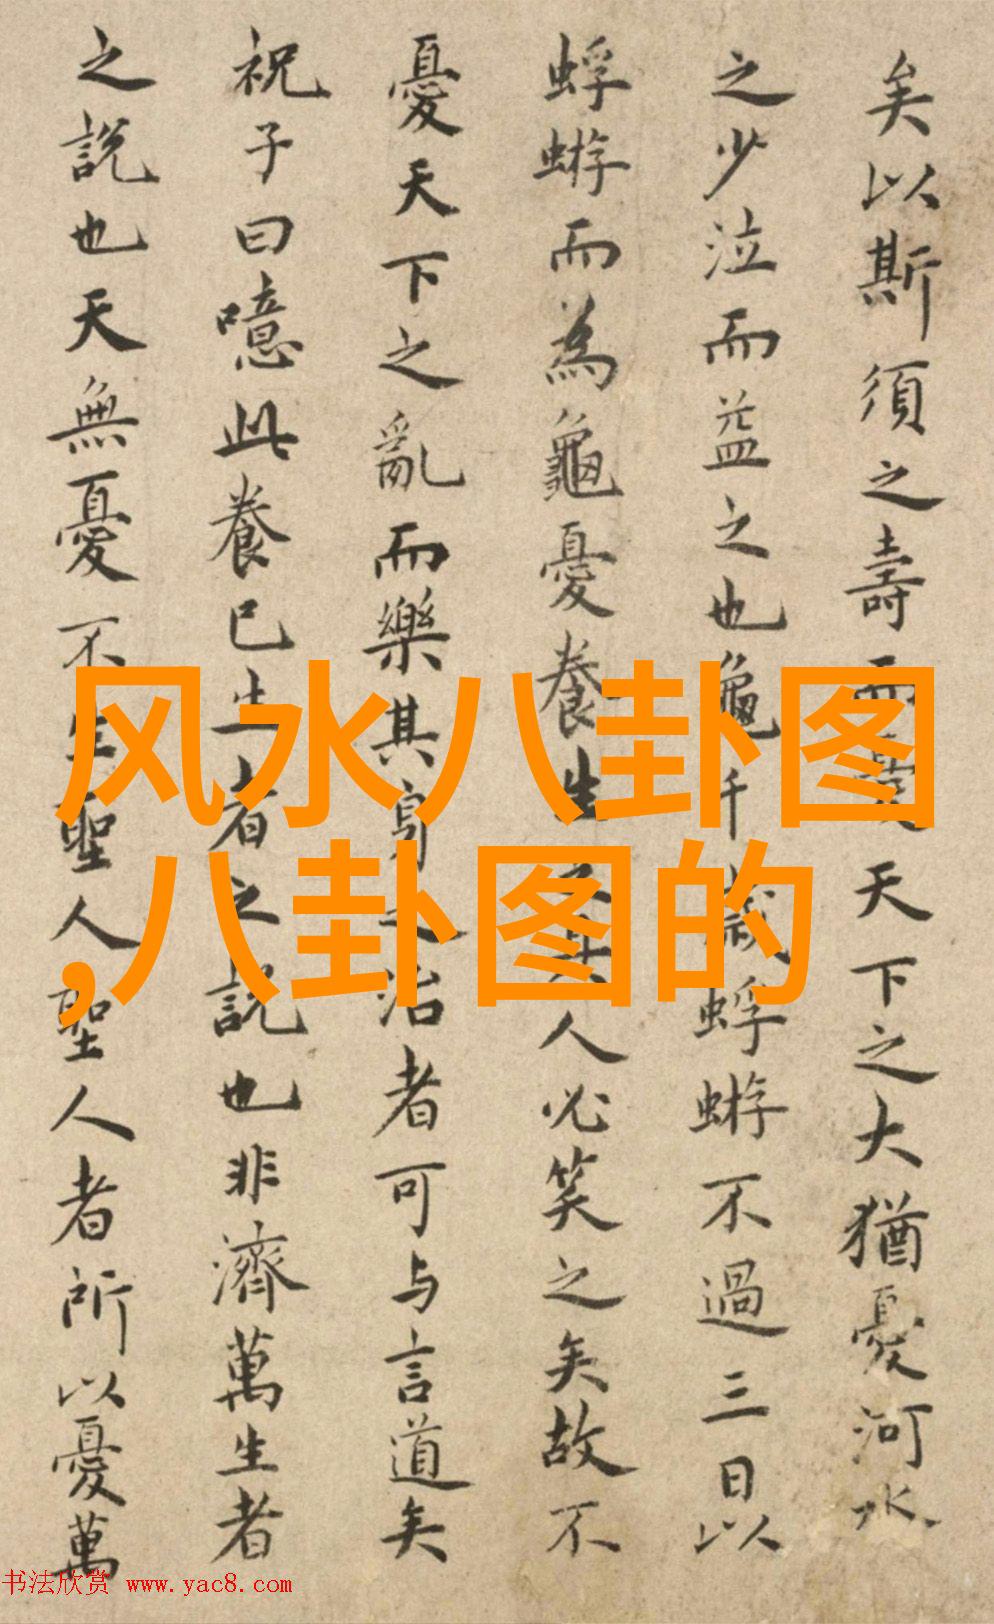 矣以斯須之壽而憂天下之大猶憂河水
之少泣而益之也龜千歲蜉蝣不過三日以
蜉蝣而為龜憂養生之具人必笑之矣故不
憂天下之亂而樂其身之治者可与言道矣
祝子曰噫此養已生者之説也非濟萬生者
之説也天無憂不生聖人聖人者所以憂萬
风水八卦图
,八卦图的
书法欣赏 www.yac8.com